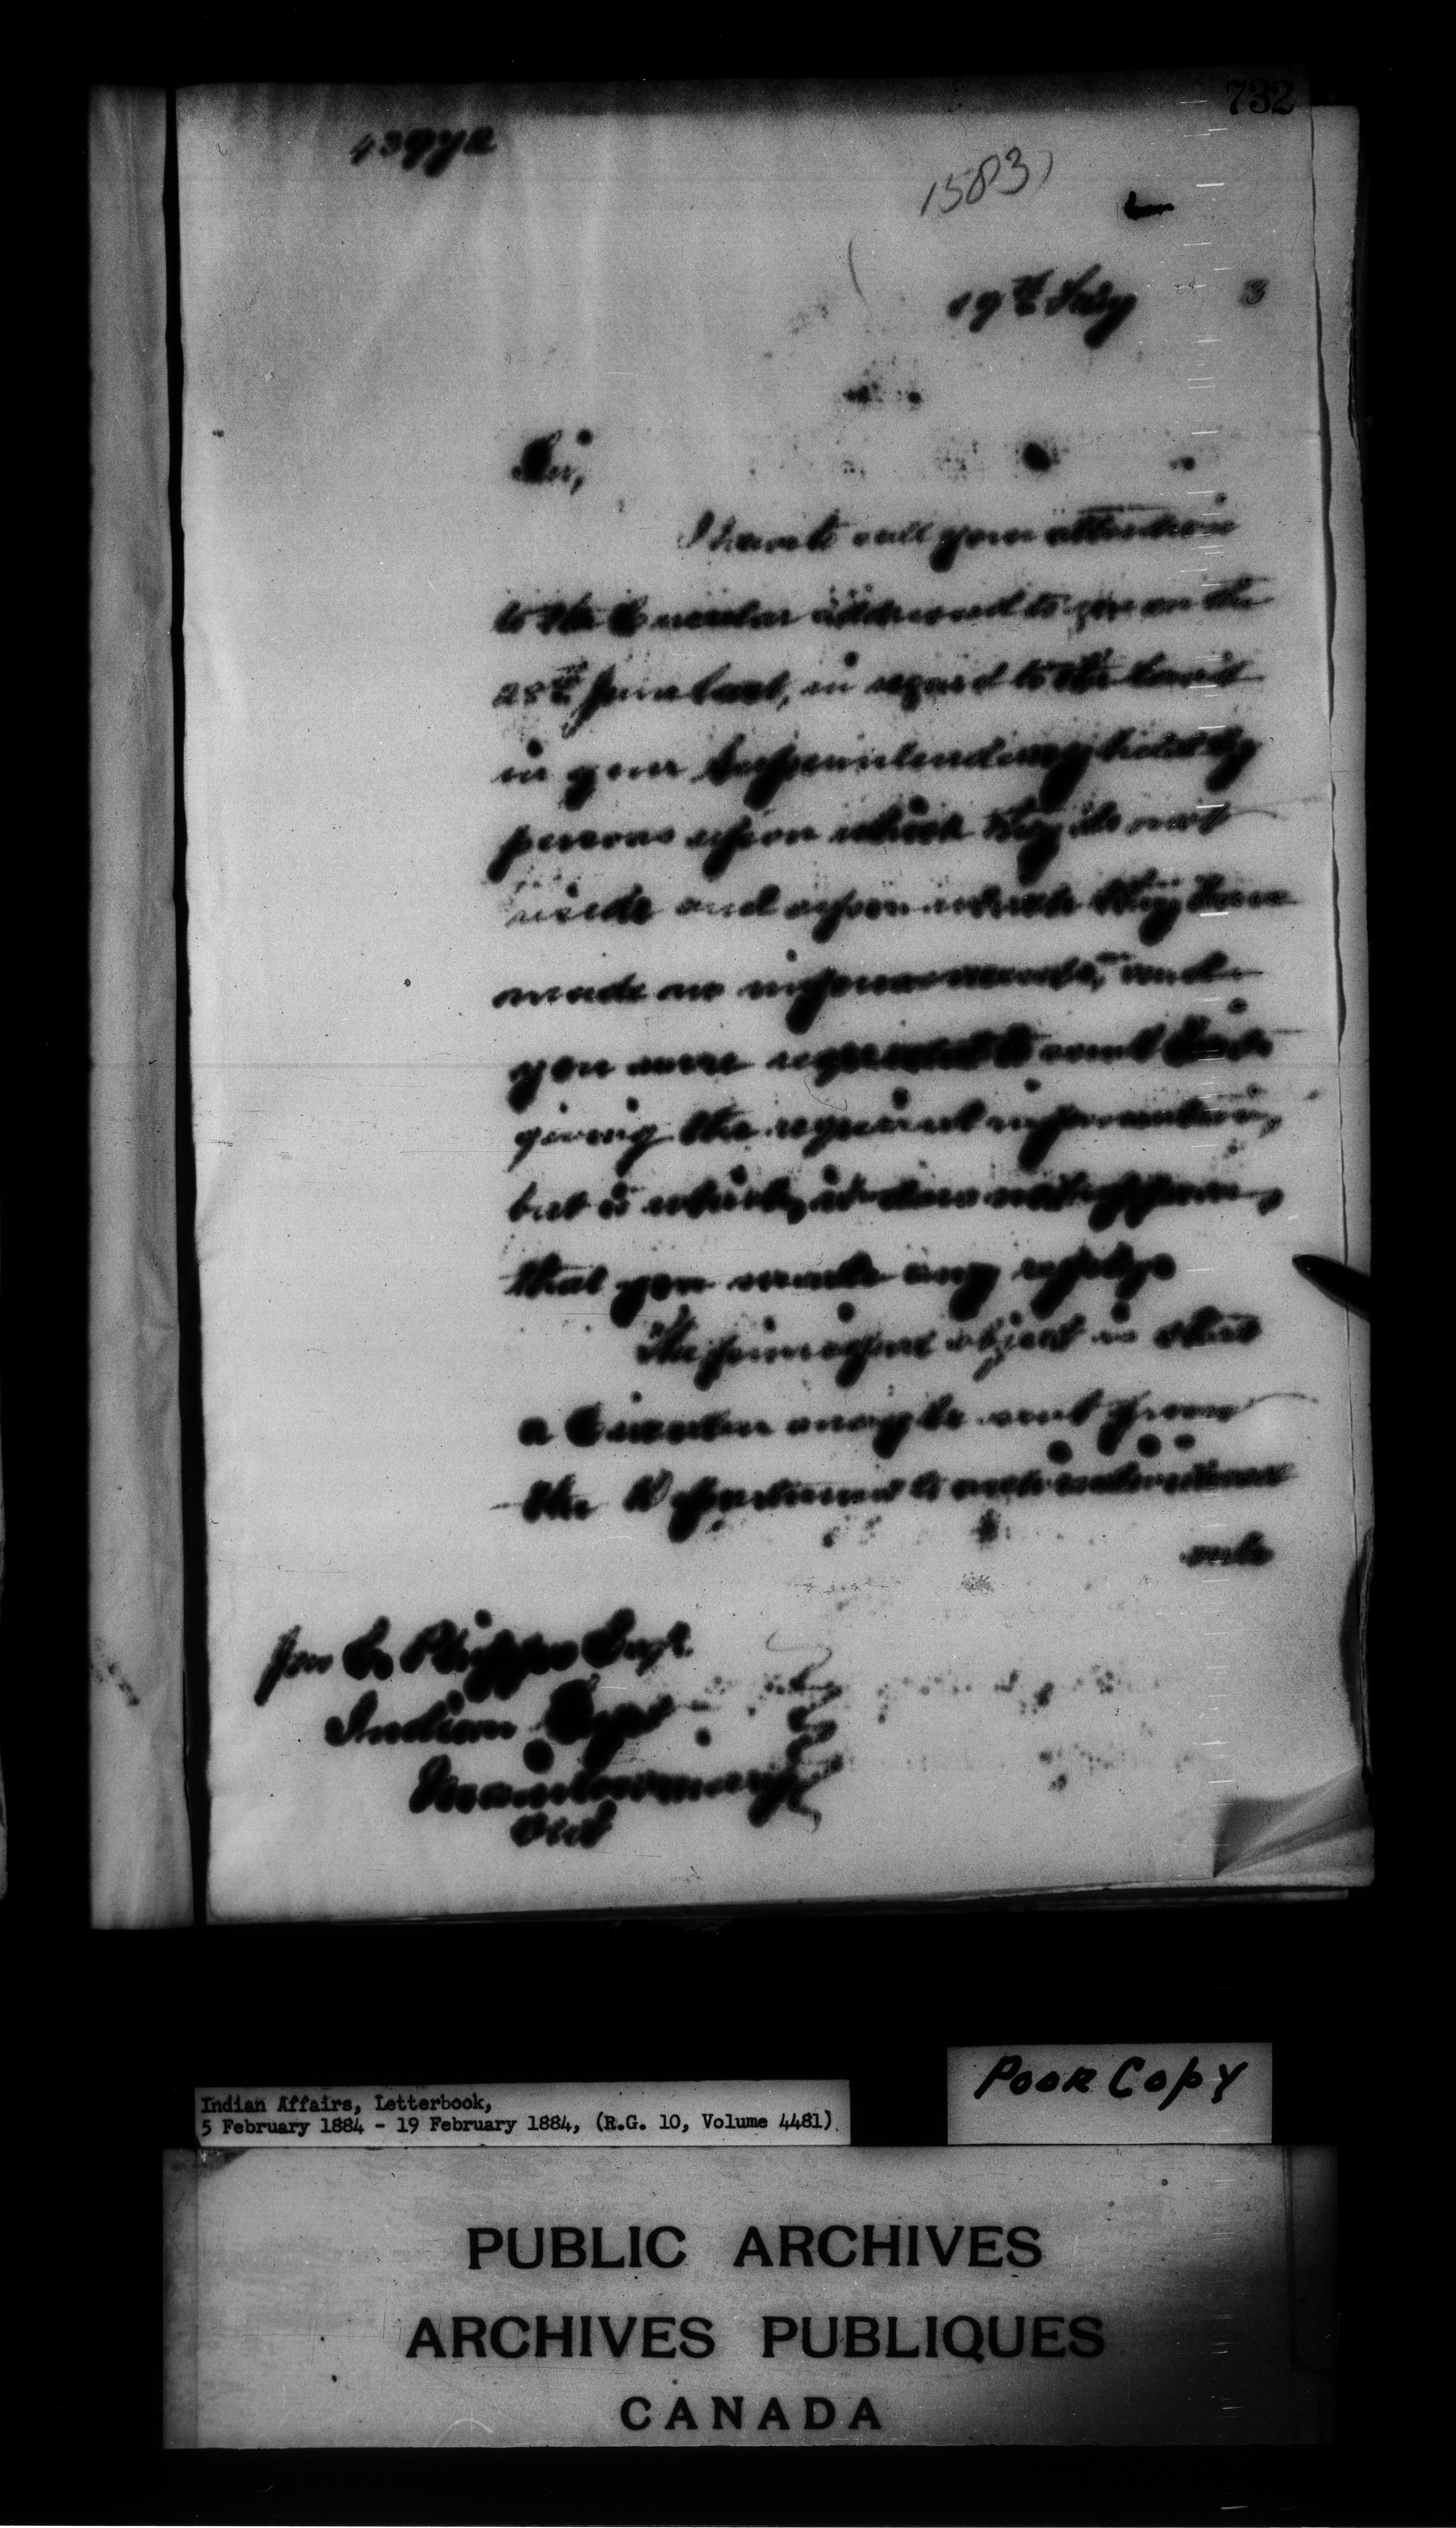 732
43972
1583
19th Feby
Sir,
I have to call your attention
to the Circular addressed to you on the
28th June last, in regard to the lands
in your Superintendency held by
persons upon which they do not
reside and upon which they have
made no improvements, and
you were requested to
giving the required information,
but to which, it does not appear,
that you made any reply.
The principal object is that
a Circular may be sent from
the Department to
Jas C. Phipps Esqr.
Indian Supt
Manitowaning
Ont
Poor Copy
Indian Affairs, Letterbook,
5 February 1884 - 19 February 1884, (R.G. 10, Volume 4481)
PUBLIC ARCHIVES
ARCHIVES PUBLIQUES
CANADA